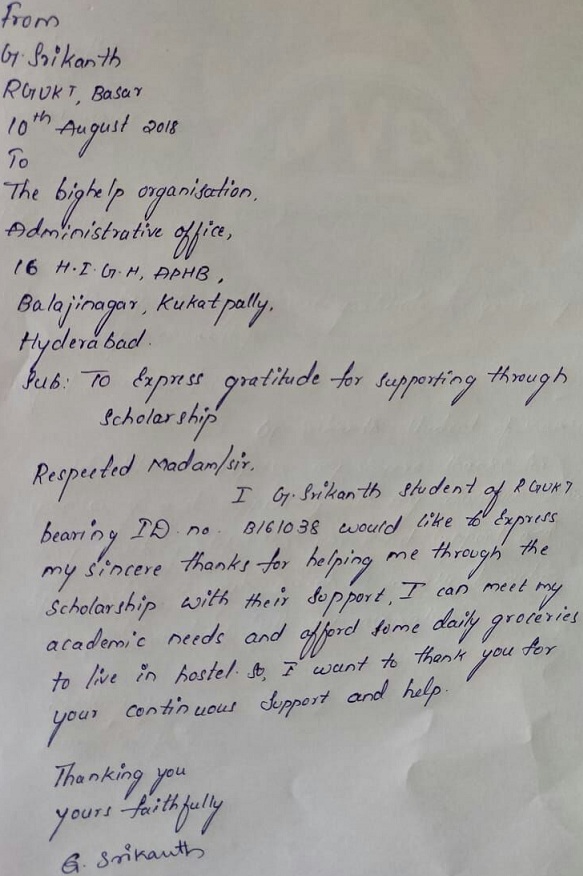 From
G. Srikanth
RGUKT, Basar
10th August 2018
To
The bighelp organisation,
Administrative office,
16 H.I.G.H, APHB,
Balajinagar, Kukatpally,
Hyderabad.
Sub: To Express gratitude for supporting through
scholarship
Respected Madam/sir,
I G. Srikanth student of RGUKT
bearing ID no. B161038 would like to Express
my sincere thanks for helping me through the
scholarship with their support, I can meet my
academic needs and afford some daily groceries
to live in hostel. So, I want to thank you for
your continuous support and help.
Thanking you
yours faithfully
G. Srikanth